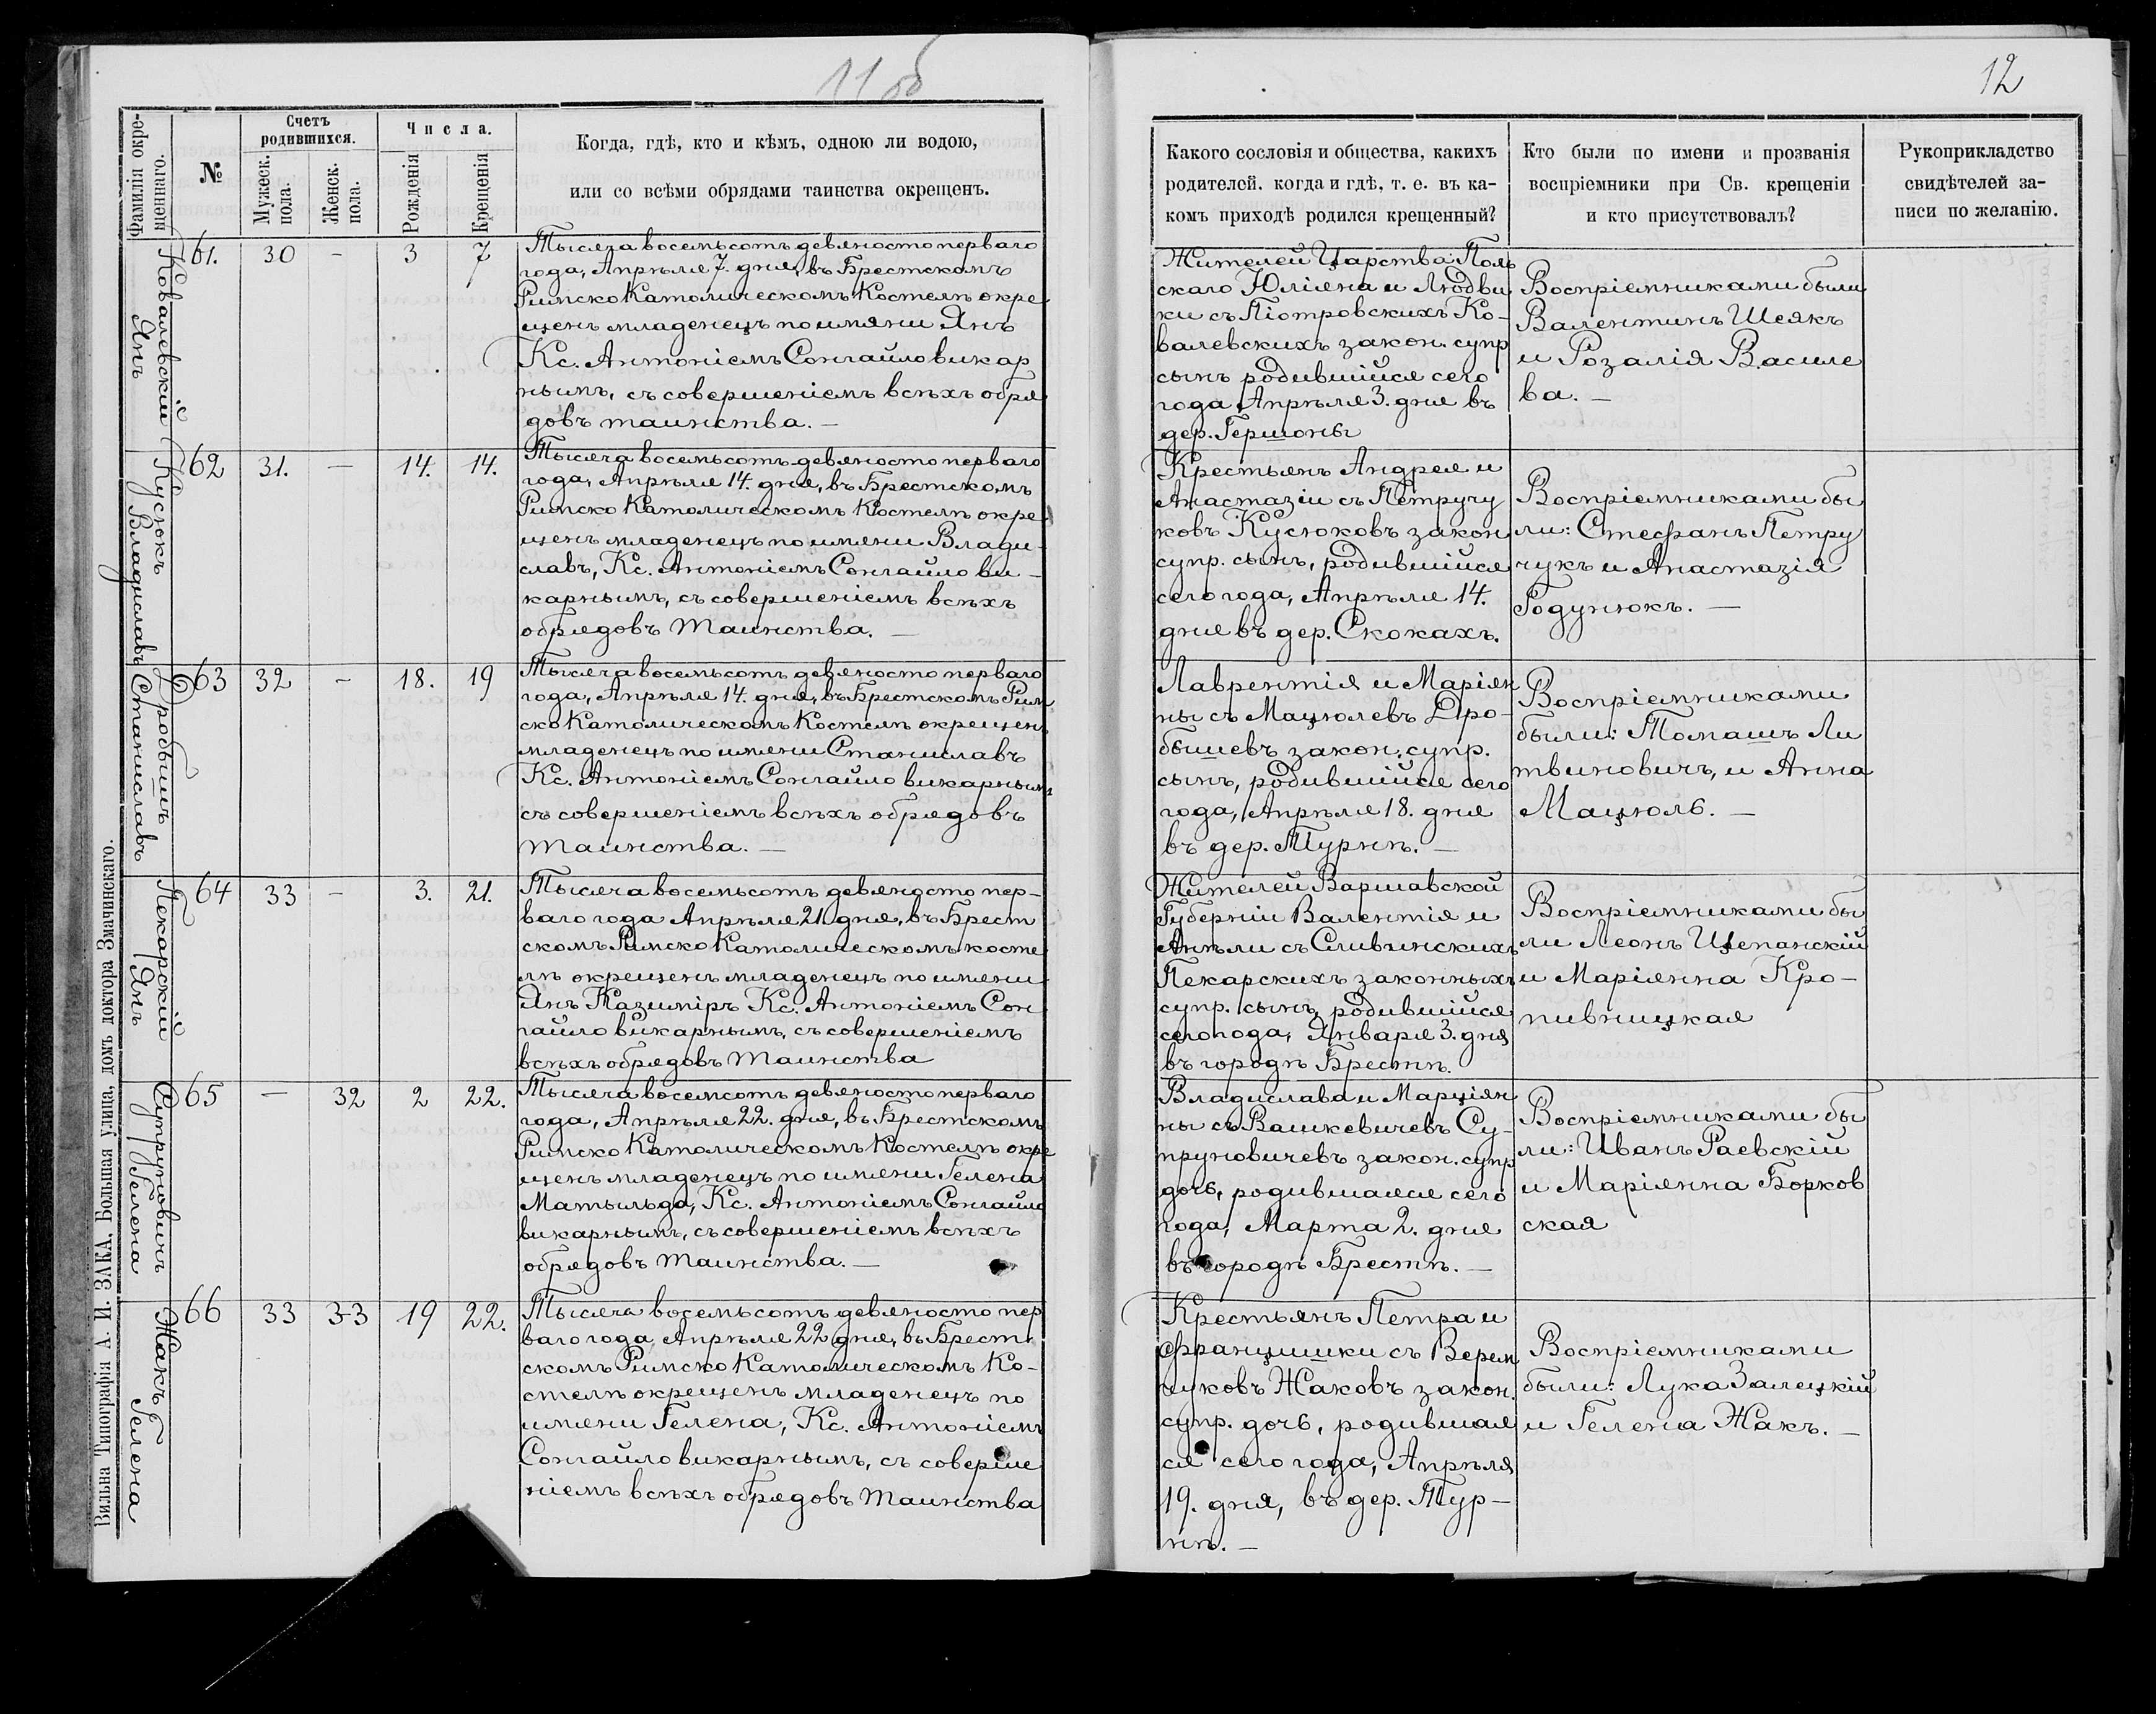 11 об
12
Фамилія окре-
щеннаго.
№
Счетъ
родившихся.
Мужеск.
пола.
Женск.
пола.
Числа.
Рожденія
Крещенія
Когда, гдѣ, кто и кѣмъ, одною ли водою,
или со всѣми обрядами таинства окрещенъ.
Какого сословія и общества, какихъ
родителей. когда и гдѣ, т. е. въ ка-
комъ приходѣ родился крещенный?
Кто были по имени и прозванія
воспріемники при Св. крещеніи
и кто присутствовалъ?
Рукоприкладство
свидѣтелей за-
писи по желанію.
Ковалевскій
Янъ
61. 30 - 3 7
Тысяча восемьсотъ девяносто перваго
года, Апрѣля 7. дня, въ Брестскомъ
Римско Католическомъ Костелѣ окре
щенъ младенецъ по имяни Янъ
Кс. Антоніемъ Сонгайло викар
нымъ, съ совершеніемъ всѣхъ обря
довъ таинства. —
Жителей Царства Поль
скаго Юліяна и Людви
ки съ Піотровскихъ Ко-
валевскихъ закон. супр
сынъ родившійся сего
года Апрѣля 3. дня въ
дер. Гершоны
Воспріемниками были
Валентинъ Шеякъ
и Розалія Василе
ва. —
Кусюкъ
Владиславъ
62 31. — 14. 14.
Тысяча восемьсотъ девяносто перваго
года, Апрѣля 14. дня, въ Брестскомъ
Римско Католическомъ Костелѣ окре
щенъ младенецъ по имени Влади-
славъ, Кс. Антоніемъ Сонгайло ви-
карнымъ, съ совершеніемъ всѣхъ
обрядовъ Таинства. —
Крестьянъ Андрея и
Анастазіи съ Петручу
ковъ Кусюковъ закон
супр. сынъ, родившійся
сего года, Апрѣля 14.
дня въ дер. Скокахъ.
Воспріемниками бы
ли: Стефанъ Петру
чукъ и Анастазія
Годунюкъ. —
Дробышъ
Станиславъ
63 32 - 18. 19
Тысяча восемьсотъ девяносто перваго
года, Апрѣля 14. дня, въ Брестскомъ Рим
ско Католическомъ Костелѣ окрещенъ
младенецъ по имени Станиславъ
Кс. Антоніемъ Сонгайло викарнымъ
съ совершеніемъ всѣхъ обрядовъ
Таинства. —
Лаврентія и Маріян
ны съ Мацюлевъ Дро-
бышевъ закон. супр.
сынъ, родившійся сего
года, Апрѣля 18. дня
въ дер. Турнѣ. —
Воспріемниками
были: Томашъ Ли
твиновичъ, и Анна
Мацюль. —
Пекарскій
Янъ
64 33 - 3. 21.
Тысяча восемьсотъ девяносто пер-
ваго года Апрѣля 21 дня, въ Брест
скомъ Римско Католическомъ косте
лѣ окрещенъ младенецъ по имени
Янъ Казиміръ Кс. Антоніемъ Сон
гайло викарнымъ, съ совершеніемъ
всѣхъ обрядовъ Таинства
Жителей Варшавской
Губерніи Валентія и
Анѣли съ Сливинскихъ
Пекарскихъ законныхъ
супр. сынъ, родившійся
сего года, Января 3. дня
въ городѣ Брестѣ.
Воспріемниками бы
ли Леонъ Щепанскій
и Маріянна Кро-
пивницкая
Супруновичъ
Гелена
65 — 32 2 22.
Тысяча восемсотъ девяносто перваго
года, Апрѣля 22. дня, въ Брестскомъ
Римско Католическомъ Костелѣ окре
щенъ младенецъ по имени Гелена
Матыльда, Кс. Антоніемъ Сонгайло
викарнымъ, съ совершеніемъ всѣхъ
обрядовъ Таинства. —
Владислава и Марціян
ны съ Вашкевичевъ Су-
пруновичевъ закон. супр
дочь, родившаяся сего
года, Марта 2. дня
въ городѣ Брестѣ. —
Воспріемниками бы
ли: Иванъ Раевскій
и Маріянна Борков
ская
Жакъ
Гелена
66 33 33 19 22.
Тысяча восемьсотъ девяносто пер
ваго года, Апрѣля 22 дня, въ Брест
скомъ Римско Католическомъ Ко-
стелѣ окрещенъ младенецъ по
имени Гелена, Кс. Антоніемъ
Сонгайло викарнымъ, съ соверше
ніемъ всѣхъ обрядовъ Таинства
Крестьянъ Петра и
Францишки съ Верем
чуковъ Жаковъ закон.
супр. дочь, родившая
ся сего года, Апрѣля
19. дня, въ дер. Тур-
нѣ. —
Воспріемниками
были: Лука Залецкій
и Гелена Жакъ. —
Вильна Типографія А. И. ЗАКА, Большая улица, домъ доктора Змачинскаго.